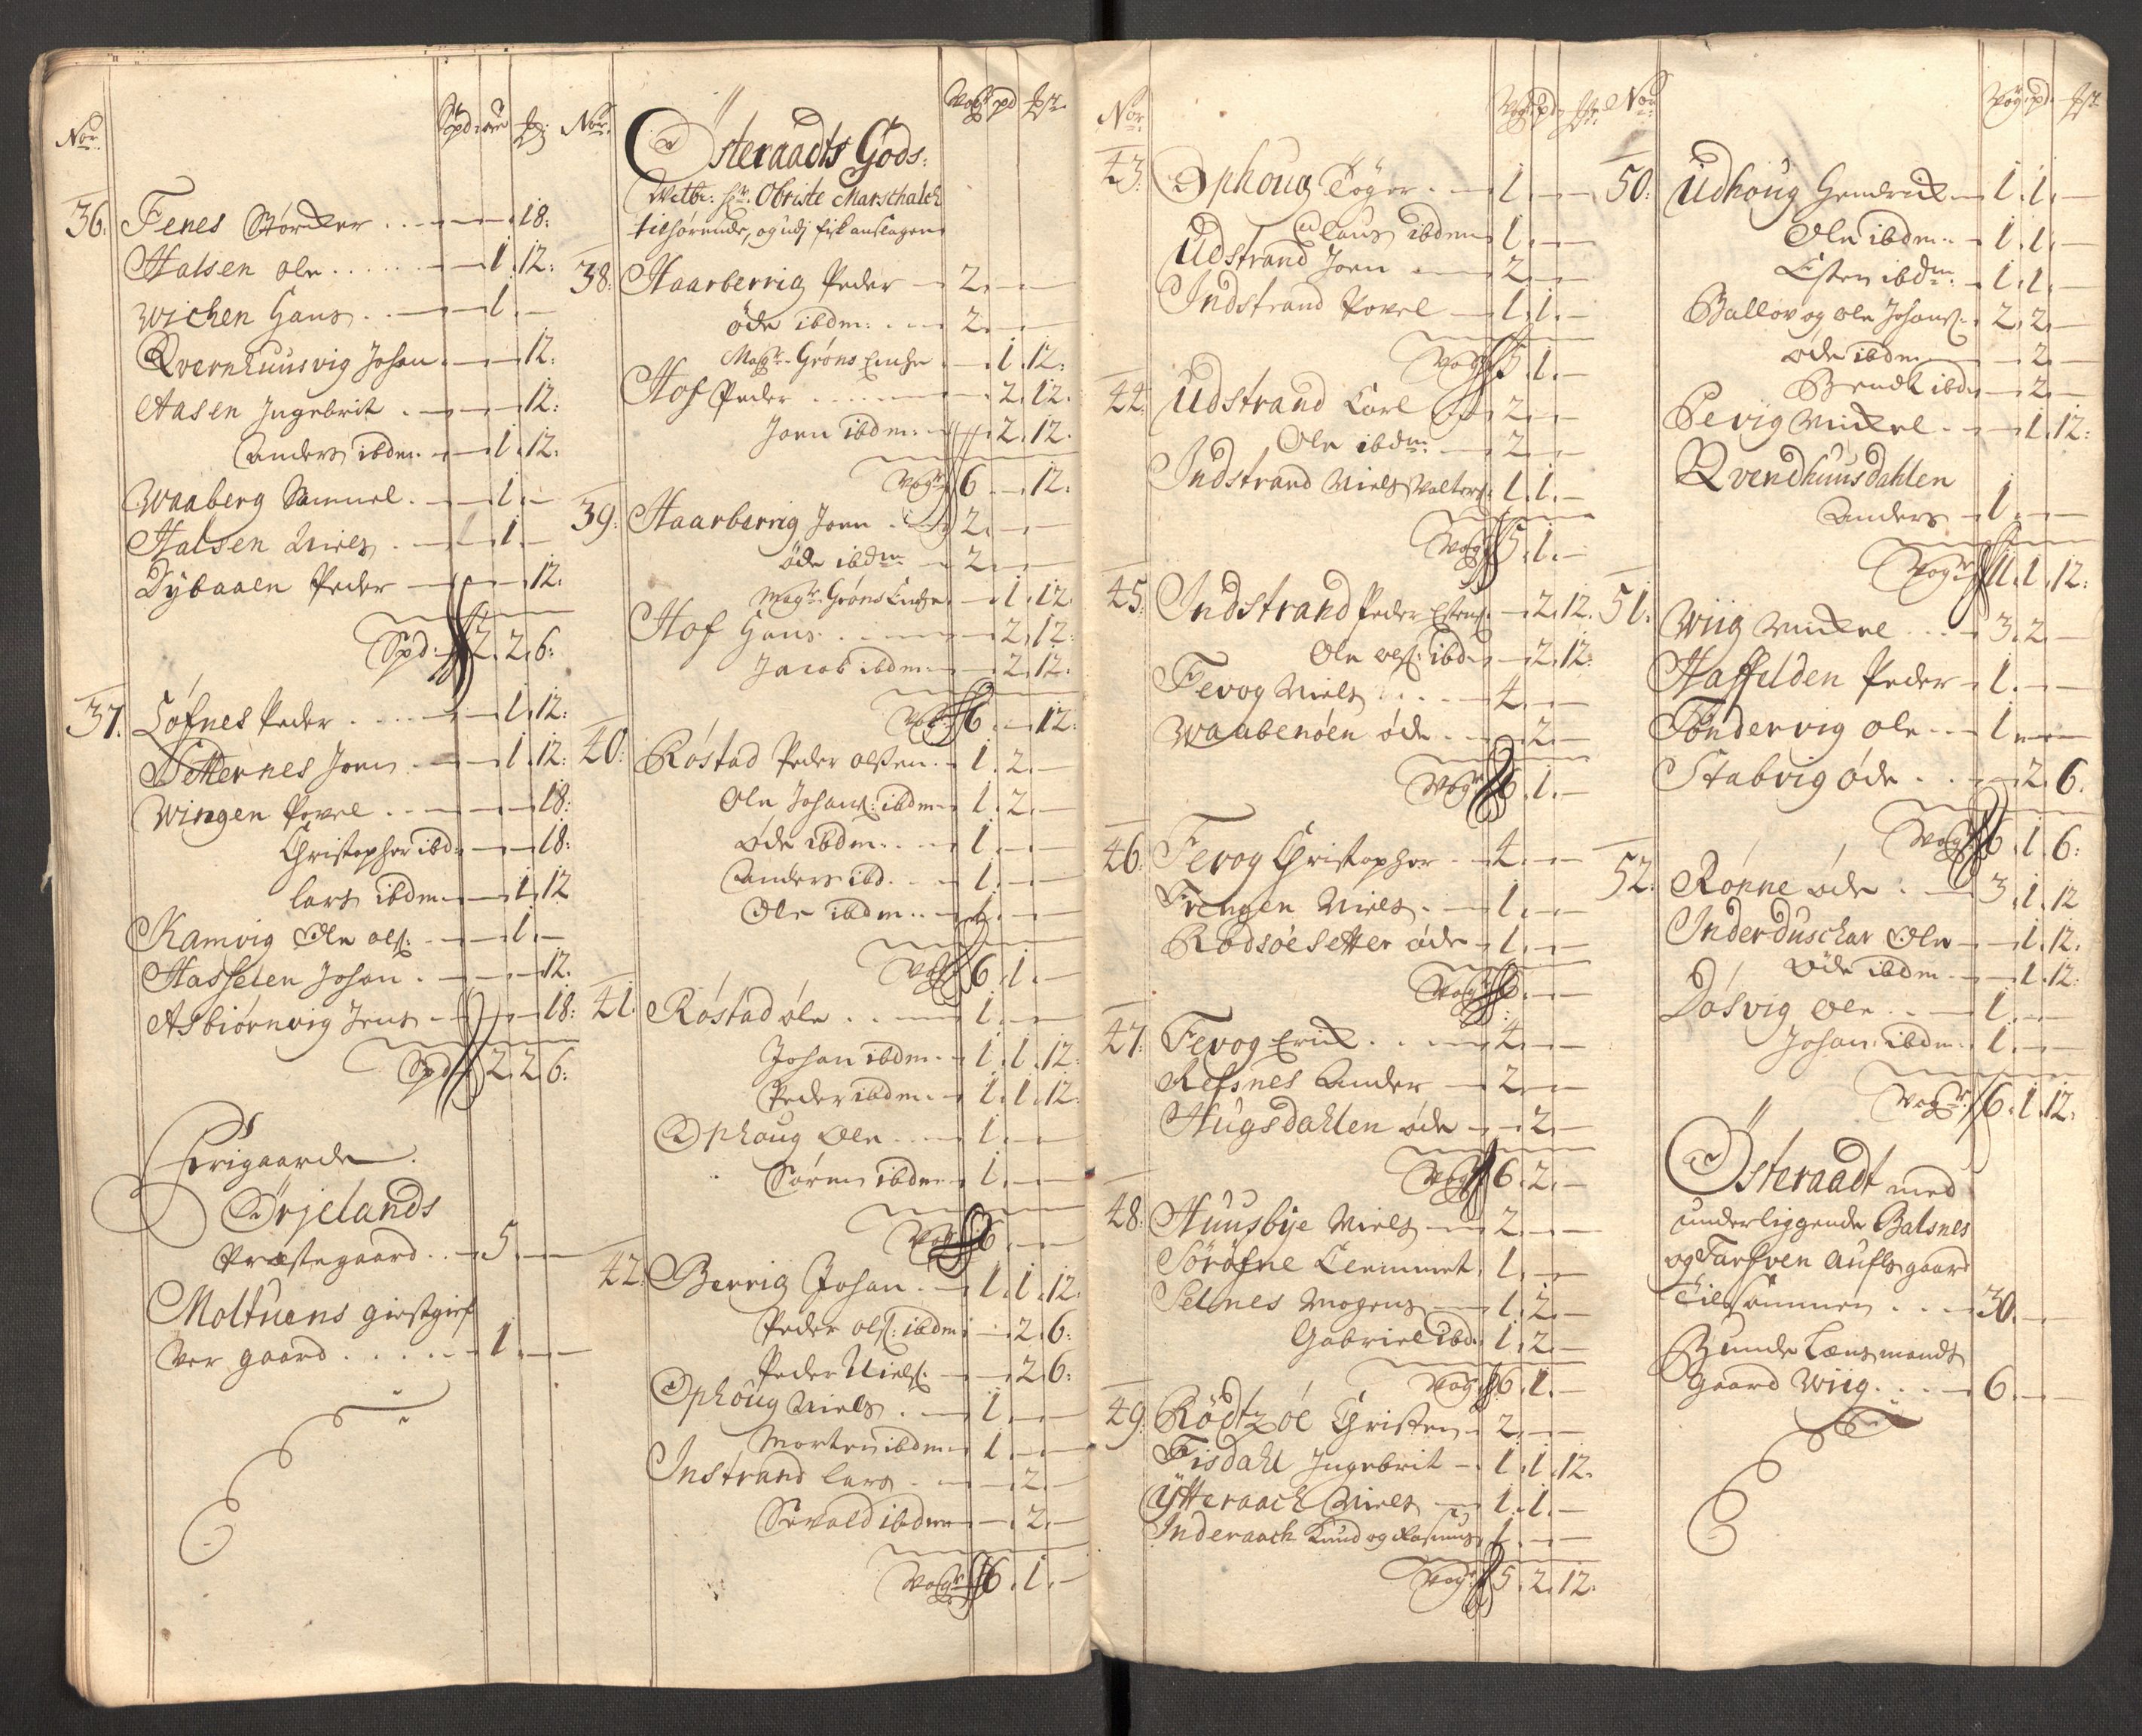 No. Spd. ore
36: Fenes Størcker 18:
Halsen ole 1. 12:
Wichen Hans 1. —
Qvernhuusvig Johan 12:
Aasen Ingebrit 12:
Anders ibdm. 1. 12:
Waaberg Samuel 1. —
Halsen Niels 1. —
Dybaaen Peder 12:
Spd. 2. 2. 6:
37. Løfnes Peder 1. 12:
Setternes Joen 1. 12:
Wingen Povel 18:
Christopher ibd: 18:
lars ibdm 1. 12
Kamvig Ole ols: 1. —
Hasselen Johan 12.
Asbiørnvig Jens 18:
Spd 2. 2. 6:
Frrigaarde
Ørjelands
Præstegaard 5
Moltuens giestgif
ver gaard 1
No. Vog pd
Østeraadts Gods:
Welb: Hr. Obriste Marschalck
tilhørende, og udj fisk anslagen
38: Haarberrig Peder 2. —
öde ibdm: 2. —
Magr. Grøns Enche 1. 12:
Hof Peder 2. 12.
Joen ibdm: 2. 12.
Vogr 6. — 12:
39: Haarberrig Joen 2. —
öde ibdm 2. —
Magr. Grøns Enche 1. 12.
Hof Hans 2. 12:
Jacob ibdm 2. 12.
Vogr 6. — 12:
40: Røstad Peder olssen 1. 2. —
Ole Johans: ibdm 1. 2. —
Øde ibdm 1. —
Anders ibd. 1. —
Ole ibdm 1. —
Vogr 6. 1. —
41. Røstad ole 1. —
Johan ibdm 1. 1. 12:
Peder ibdm 1. 1. 12:
Ophaug Ole 1. —
Søren ibdm 1. —
Vogr 6. —
42: Berrig Johan 1. 1. 12.
Peder ols: ibdm 2. 6:
Peder Niels: 2. 6:
Ophøug Niels 1. —
Morten ibdm 1. —
Instrand lars 2. —
Sivald ibdm 2. —
Vogr 6. 1. —
No. Vogr. pd
43: Ophoug Tøger 1. —
Claus ibdm 1. —
Udstrand Joen 2. —
Indstrand Povel 1. 1. —
Vogr 5. 1. —
44: Udstrand Carl 2. —
Ole ibdm: 2. —
Indstrand Niels Valters: 1. 1. —
Vogr 5. 1. —
45: Indstrand Peder Estens: 2. 12.
Ole ols: ibd 2. 12:
Fevog Niels 4. —
Waabenøen øde 2. —
Vogr 6. 1. —
46: Fevog Christopher 4. —
Frengen Niels 1. —
Rødsøesetter øde 1. —
Vogr 6. —
47: Fevog Erick 4. —
Refsnes Ander 2. —
Hugsdahlen øde 2. —
Vogr 6. 2. —
48: Huusbye Niels 2. —
Sørøfne Clemmet 1. —
Selnes Mogens 1. 2. —
Gabriel ibd 1. 2. —
Vogr 6. 1. —
49: Rødtzøe Christen 2. —
Fisdahl Ingebrit 1. 1. 12.
Ytteraach Niels 1. 1. —
Inderaach Knud og Rasmus 1. —
Vogr 5. 2. 12.
No. Vogr. pd.
50: Udhoug Hendrick 1. 1. —
Ole ibdm 1. 1. —
Esten ibdm: 1. 1. —
Ballov og ole Johans: 2. 2. —
øde ibdm 2. —
Bendt ibdm 2. —
Bevig Mickel 1. 12:
Qvendhuusdahlen
Anders 1. —
Vogr 11. 1. 12:
51: Wiig Mickel 3. 2. —
Haffelden Peder 1. —
Tøndervig ole 1. —
Stabvig øde 2. 6.
Vogr 6. 1. 6:
52: Rønne øde 3. 1. 12
Inderduschar Ole 1. 12.
Øde ibdm 1. 12:
Døsvig Ole 1. —
Johan ibdm 1. —
Vogr. 6. 1. 12.
Østeraadt med
underliggende Balsnes
og Tarfven Aufls gaard
Tilsammen 30.
Bunde Lensmands
gaard Wiig 6. —